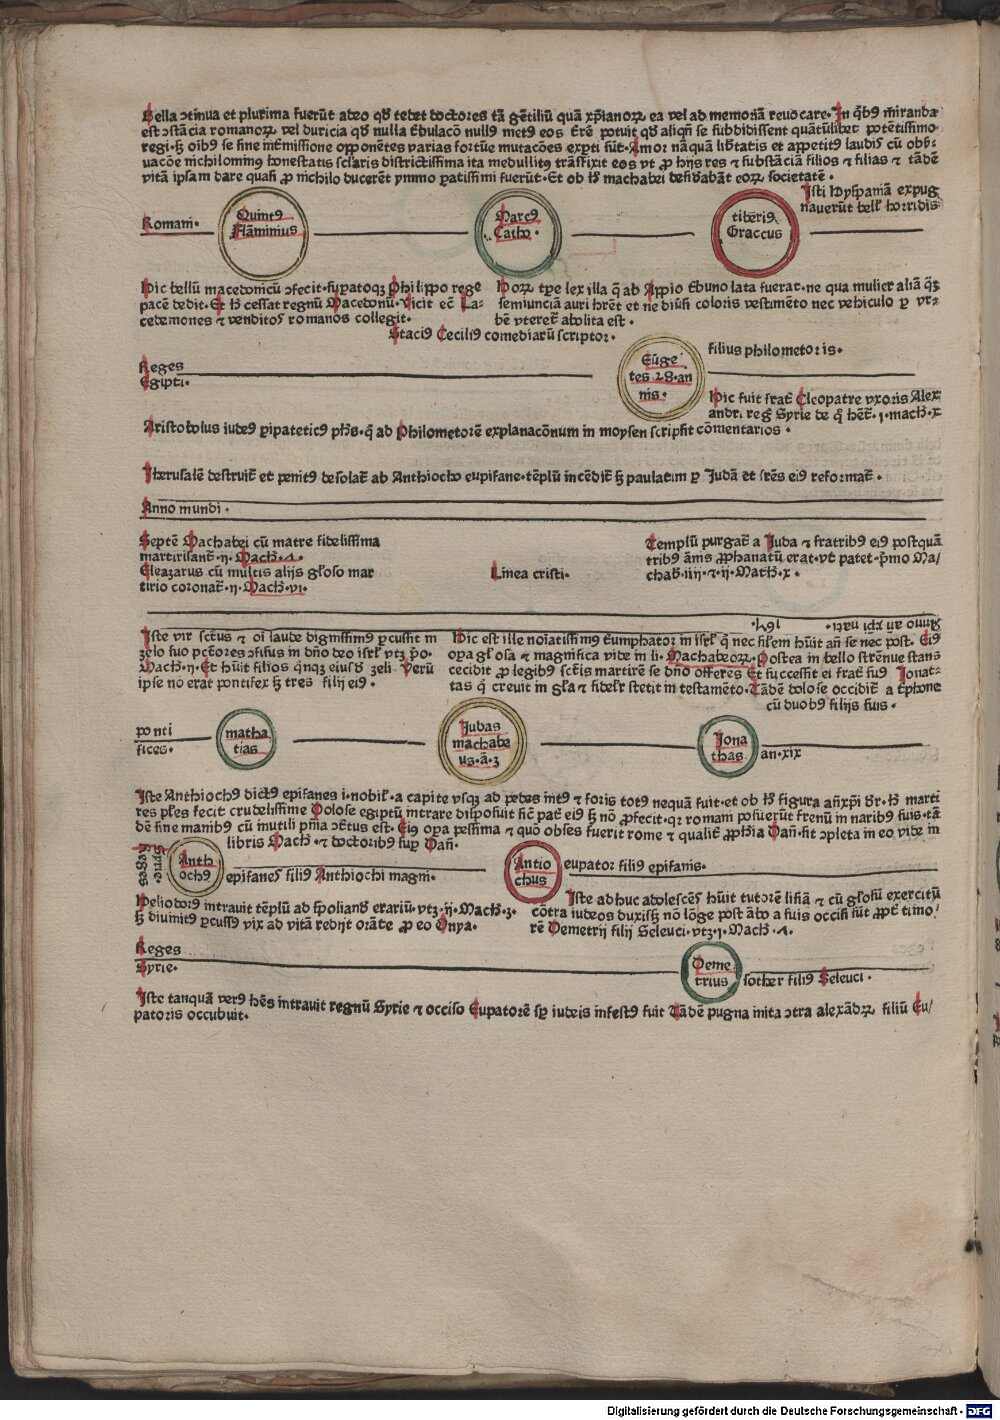 Bella ↄtinua et plurima fuerūt adeo qď tedet doctores tā gētiliū quā xp̄ianoꝝ ea vel ad memoriā reuocare. In qͥbꝰ miranda
est ↄstācia romanoꝝ vel duricia qď nulla tribulacō nullꝰ metꝰ eos terrē potuit qď aliqn̄ se subbidissent quātūlibet potētissimo
regi. sꝫ oibꝰ se sine intermissione opponētes varias fortūe mutacōes experti sūt. Amor nāquā libertatis et appetitꝰ laudis cū obser-
uacōe nichilominꝰ honestatis scl'aris districtissima ita medullitꝰ trāsfixit eos vt ꝓ hijs res ⁊ substāciā filios ⁊ filias ⁊ tādē
vitā ipsam dare quasi ꝓ nichilo ducerēt ymmo ꝑatissimi fuerūt. Et ob hͦ machabei desiderabāt eoꝝ societatē.
Isti hyspaniā expug
nauerūt bell' horridis
Romani.
Quintꝰ
Flāminius
Marcꝰ
Catho.
tiberiꝰ
Graccus
Hic bellū macedonicū ↄfecit. suꝑatoqꝫ Philippo rege
pacē dedit. Et hͨ cessat regnū Macedonū. Vicit etiā La-
cedemones ⁊ venditos romanos collegit.
Hoꝝ tꝑe lex illa q̄ ab Appio tribuno lata fuerat. ne qua mulier aliā qͣꝫ
semiunciā auri hret et ne diuersi coloris vestimēto nec vehiculo ꝑ vr-
bē vteret̃ abolita est.
Staciꝰ Ceciliꝰ comediarū scriptor.
Reges
Egipti.
Euerge
tes .28. an
nis.
filius philometoris.
Hic fuit frat̃ Cleopatre vxoris Alex
andr. reg̃ Syrie de q̄ het̃ .j. mach. x
Aristobolus iudeꝰ ꝑipateticꝰ ph̄s. q̄ ad Philometorē explanacōnum in moysen scripsit cōmentarios.
Jherusalē destruit̃ et penitꝰ desolat̃ ab Anthiocho eupifane. tēplū incēdit̃ sꝫ paulatim ꝑ Judā et fr̄es eiꝰ reformat̃.
Anno mundi.
Septē Machabei cū matre fidelissima
martirisant̃. ij. Mach. 7.
Eleazarus cū multis alijs gl'oso mar
tirio coronat̃. ij. Mach. vi.
Linea cristi.
Templū purgat̃ a Juda ⁊ fratribꝰ eiꝰ postquā
tribꝰ ānis ꝓphanatū erat. vt patet p̄mo Ma-
chab. iiij. ⁊ .ij. Mach. x.
Anno an̄ xp̄i nati. 164.
Iste vir sctūs ⁊ oī laude dignissimꝰ ꝑcussit in
zelo suo pctōres ↄfisus in dn̄o deo isrl' vtꝫ pͦ.
Mach. ij. Et huit filios qͥnqꝫ eiusdē zeli. Verū
ipse nō erat pontifex sꝫ tres filij eiꝰ.
Hic est ille noiatissimꝰ triumphator in isrl' q̄ nec silem hūit an̄ se nec post. Eiꝰ
oꝑa gl'osa ⁊ magnifica vide in li. Machabeoꝝ. Postea in bello strēnue stans
cecidit ꝓ legibꝰ sctīs martirē se dn̄o offerēs Et successit ei frat̃ suꝰ Jonat-
tas q̄ creuit in gl'a ⁊ fidelit̃ stetit in testamēto. Tādē dolose occidit̃ a triphone
cū duobꝰ filijs suis.
ponti
fices.
matha
tias
Judas
machabe
us. ā. 3
Jona
thas
an. xix
Iste Anthiochꝰ dictꝰ epifanes i. nobil'. a capite vsqꝫ ad pedes intꝰ ⁊ foris totꝰ nequā fuit. et ob hͦ figura an̄xp̄i dr̄. hͨ marti
res pl'es fecit crudelissime Dolose egiptū intrare disposuit sic̄ pat̃ eiꝰ sꝫ nō ꝓfecit. qꝛ romani posuerūt frenū in naribꝰ suis. tā
dē sine manibꝰ cū inutili pn̄ia ↄtētus est. Eiꝰ oꝑa pessima ⁊ quō obses fuerit rome ⁊ qualit̃ ꝓphia Dan̄. sit ↄpleta in eo vide in
libris Mach. ⁊ doctoribꝰ suꝑ Dan̄.
Reges
Syrie.
Anth
ochꝰ
epifanes filiꝰ Anthiochi magni.
Antio
chus
eupator filiꝰ epifanis.
Heliodorꝰ intrauit tēplū ad spoliandū erariū. vtꝫ. ij. Mach. 3.
sꝫ diuinitꝰ ꝑcussꝰ vix ad vitā redijt orāte ꝓ eo Onya.
Iste adhuc adolescēs hūit tutorē lisiā ⁊ cū gl'osū exercitū
cōtra iudeos duxisꝫ nō lōge post ābo a suis occisi sūt ꝓpt̃ timo/
rē Demetrij filij Seleuci. vtꝫ. j. Mach. 7.
Reges
Syrie.
Deme
trius
sother filiꝰ Seleuci.
Iste tanquā verꝰ hēs intrauit regnū Syrie ⁊ occiso Eupatorē sꝑ iudeis infestꝰ fuit Tādē pugna inita ↄtra alexādꝝ filiū Eu/
patoris occubuit.
Digitalisierung gefördert durch die Deutsche Forschungsgemeinschaft - DFG